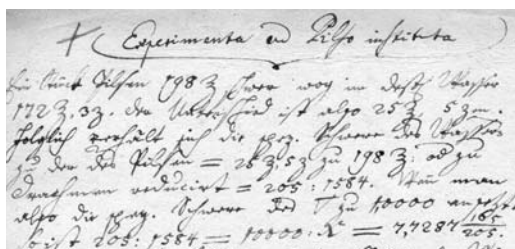 Experimenta ad Pilso instituta
Ein Stück Pilsen 198 ℥ schwer wog im dest. Wasser
172 ℥. 3 ʒ. der Unterschied ist also 25 ℥, 5 ʒ
folglich verhält sich die spez. Schwere des Wassers
zu der des Pilsen = 25 ℥, 5 ʒ zu 198 ℥: od zu
Drachmen reducirt = 205 : 1584. Wenn man
also die spez. Schwere des zu 1,0000 ansetzt
so ist 205 : 1584 = 10000 : X = 7,7287 165/205.